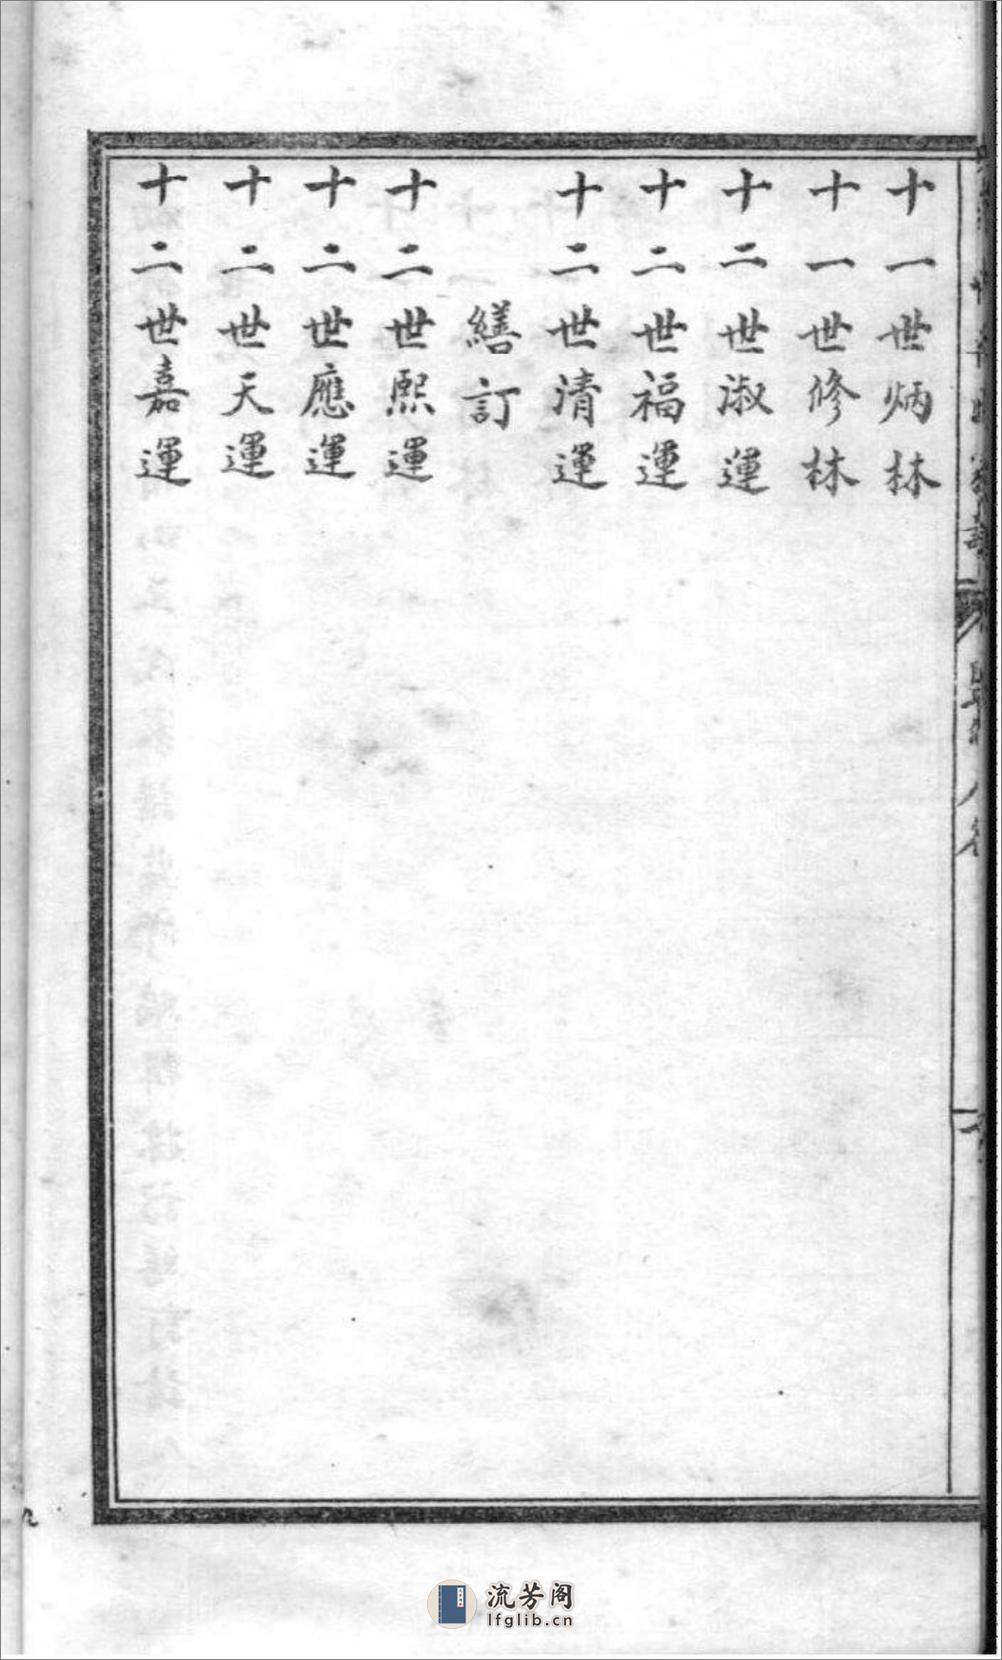 十一世炳林
十一世修林
十二世淑運
十二世福運
十二世清運
繕訂
十二世熙運
十二世應運
十二世天運
十二世嘉運
流芳阁
lfglib.cn